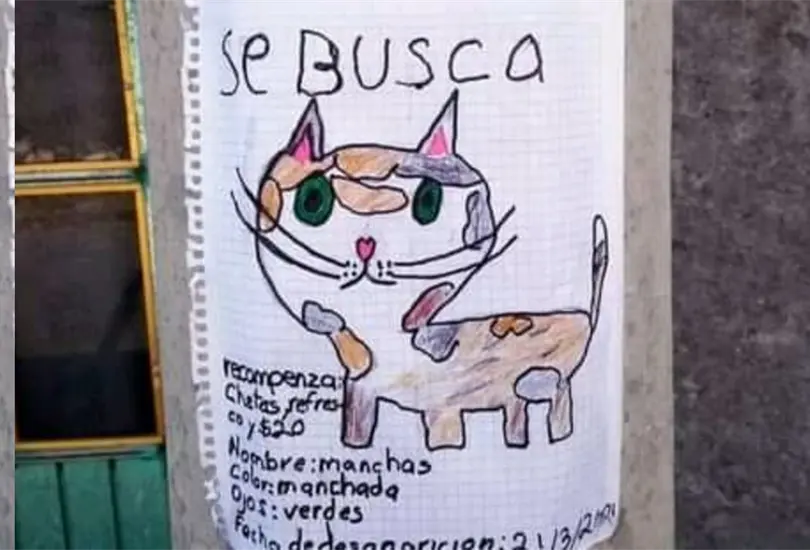 Se BUSCA
recompenza:
Chetas, refres-
co y $20
Nombre: manchas
Color: manchada
Ojos: verdes
Fecha de desaparicion: 21/3/2